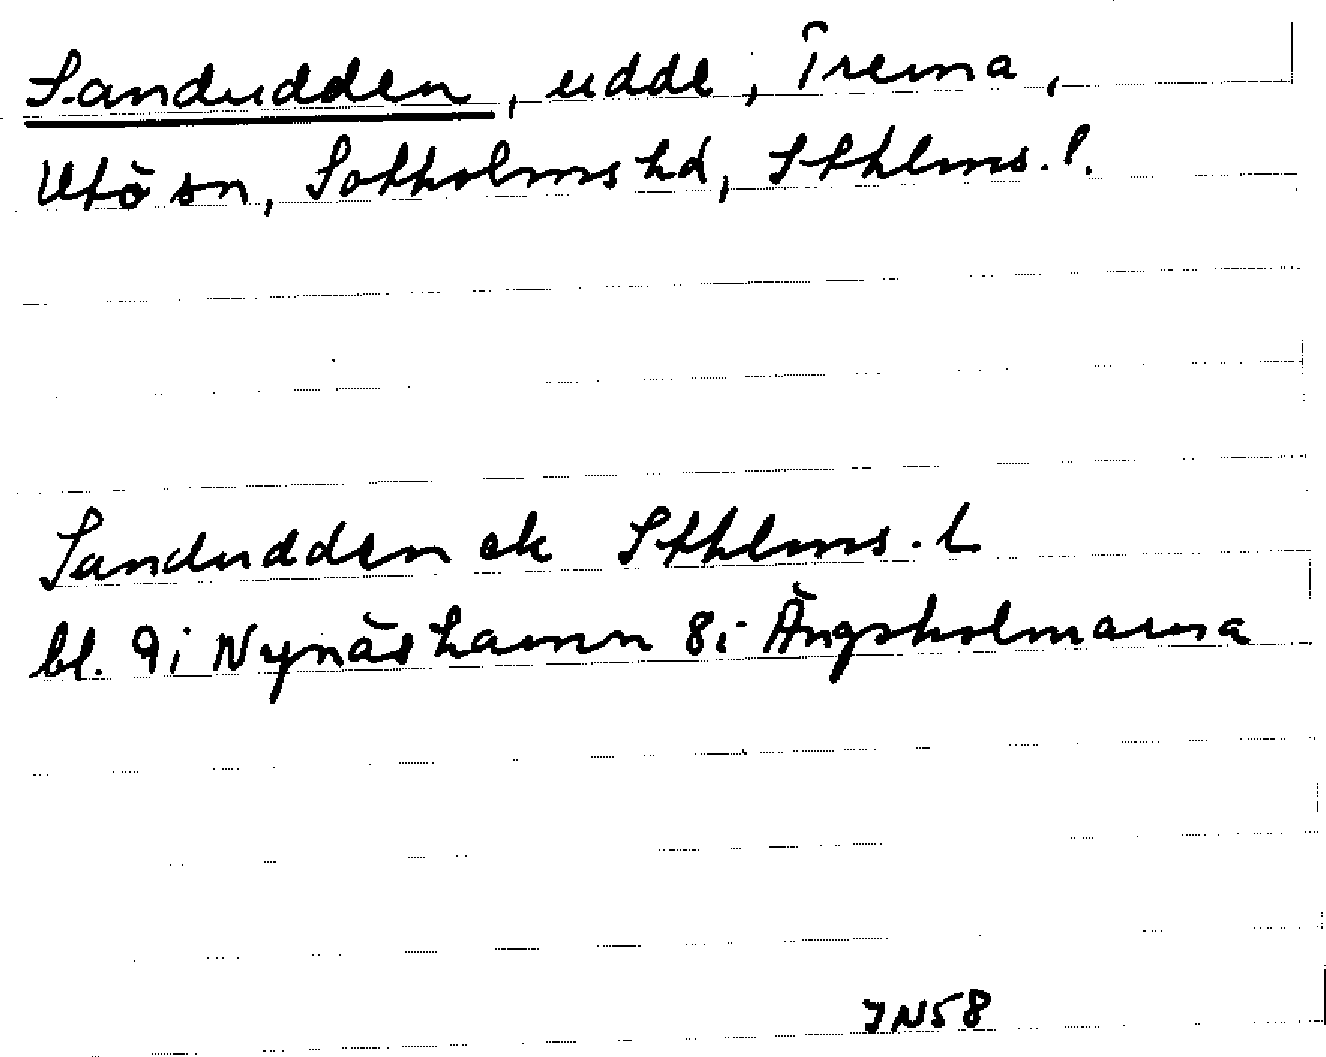 Sandudden, udde, Trema,
Utö sn, Sotholms hd, Sthlms. l.
Sandudden ek Sthlms. l
bl. 9i Nynäshamn 8i Ängsholmarna
JN58